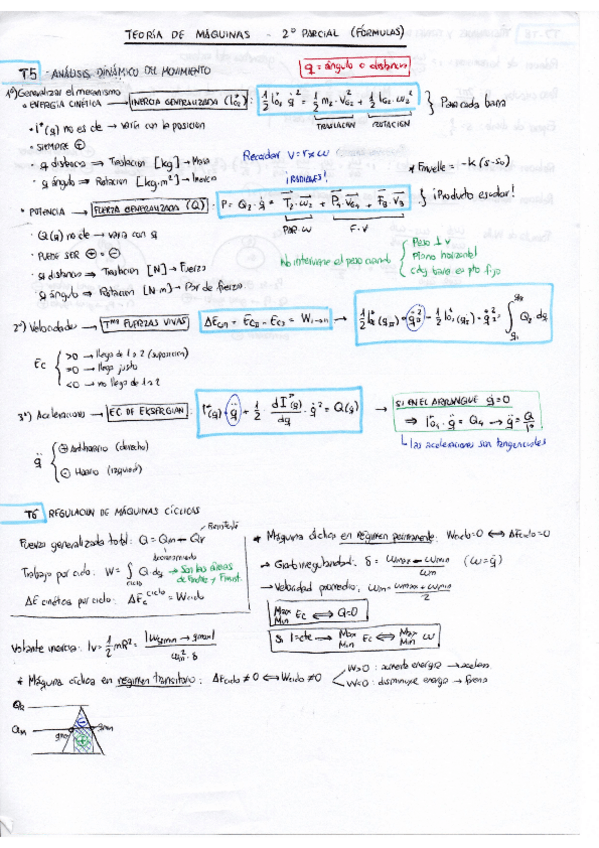 TEORÍA DE MÁQUINAS - 2º PARCIAL (FÓRMULAS)
T5 ANÁLISIS DINÁMICO DEL MOVIMIENTO
q = ángulo o distancia
1º) Generalizar el mecanismo
ENERGÍA CINÉTICA → INERCIA GENERALIZADA (I*) : 1/2 I* q̇² = 1/2 m₂ · V_G2² + 1/2 I_G2 · ω₂² } Para cada barra
TRASLACION ROTACION
• I*(q) no es cte → varía con la posición
• SIEMPRE ⊕
• q distancia ⇒ Traslacion [kg] → Masa
• q ángulo ⇒ Rotacion [kg·m²] → Inercia
Recordar V = r × ω
* Fmuelle = -k (s-s₀)
¡RADIANES!
• POTENCIA → FUERZA GENERALIZADA (Q) : } ¡Producto escalar!
PAR·ω F·V
• Q(q) no cte → varía con q
• PUEDE SER ⊕ = ⊖
• q distancia ⇒ Traslacion [N] → Fuerza
• q ángulo ⇒ Rotacion [N·m] → Par de fuerza
No interviene el peso cuando
Peso ⊥ v
Plano horizontal
cdg barra es pto fijo
2º) Velocidades → Tma FUERZAS VIVAS
Ec
>0 → llega de 1 a 2 (suposicion)
=0 → llega justo
<0 → no llega de 1 a 2
3º) Aceleraciones → EC. DE EKSERGIAN : I*(q) · q̈ + 1/2 · dI*(q)/dq · q̇² = Q(q) → SI EN EL ARRANQUE q̇=0
⇒ I* · q̈ = Q → q̈ = Q/I*
↳ las aceleraciones son tangenciales
q̈
⊕ Antihorario (derecha)
⊖ Horario (izquierda)
T6 REGULACION DE MÁQUINAS CÍCLICAS
Fuerza generalizada total: Q = Qm - Qr
Trabajo por ciclo: W = ∫ciclo Q dq → Son las áreas
ΔE cinética por ciclo: ΔEc ciclo = Wciclo
* Máquina cíclica en régimen permanente: Wciclo=0 ⟺ ΔEciclo=0
→ Grado irregularidad: δ = (ωmax - ωmin)/ωm (ω = q̇)
→ Velocidad promedio: ωm = (ωmax + ωmin)/2
Max Min Ec ⟺ Q=0
Si I=cte → Max Min Ec ⟺ Max Min ω
Volante inercia: Iv = 1/2 mR² = |W qmin → qmax| / ωm² · δ
* Máquina cíclica en régimen transitorio: ΔEciclo ≠ 0 ⟺ Wciclo ≠ 0
W>0 : aumenta energía → acelera
W<0 : disminuye energía → frena
QR
Qm
qmin
⊕